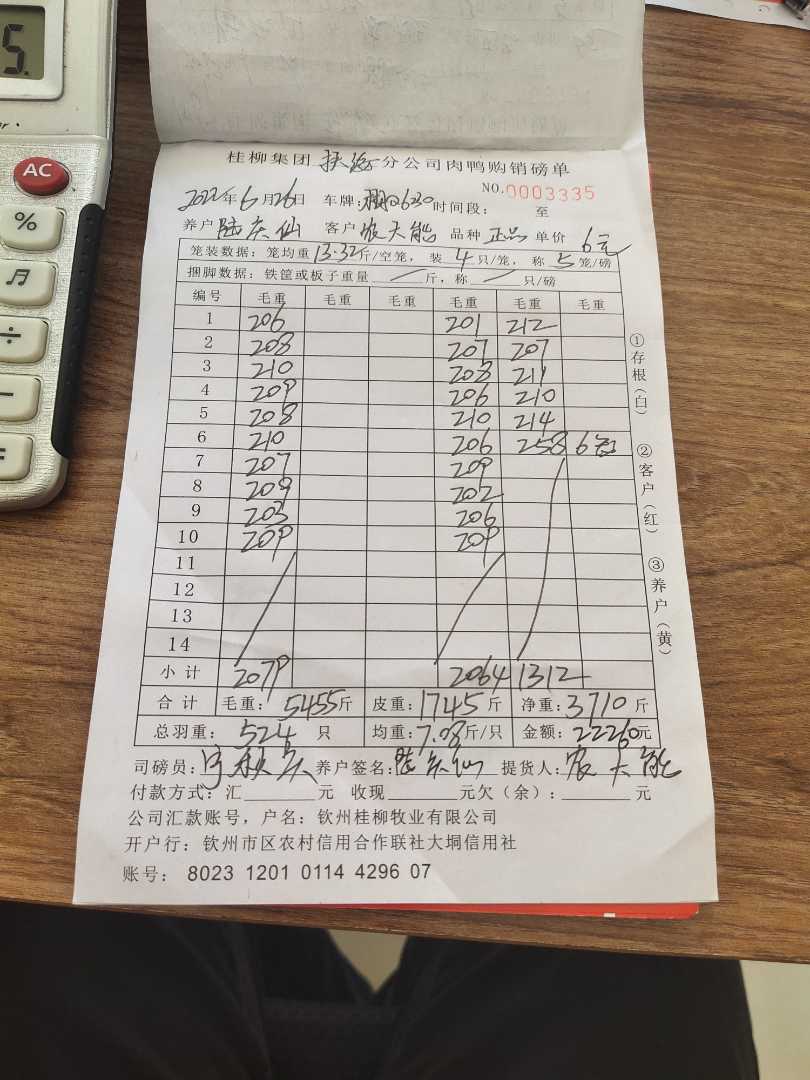 5.
AC
%
÷
−
桂柳集团 分公司肉鸭购销磅单
NO.0003335
2022年6月26日 车牌: 时间段: 至
养户 陆庆仙 客户 农天能 品种 正品 单价 6元
笼装数据: 笼均重13.32斤/空笼, 装 4 只/笼, 称 5 笼/磅
捆脚数据: 铁筐或板子重量 / 斤, 称 / 只/磅
编号 毛重 毛重 毛重 毛重 毛重 毛重
1 206 201 212
2 208 207 207
3 210 208 211
4 209 206 210
5 208 210 214
6 210 206 258 6
7 207 209
8 209 202
9 203 206
10 209 209
11
12
13
14
小计 2079 2064 1312
合计 毛重: 5455斤 皮重: 1745斤 净重: 3710斤
总羽重: 524 只 均重: 7.08斤/只 金额: 22260元
司磅员: 养户签名: 陆庆仙 提货人: 农天能
付款方式: 汇 元 收现 元欠(余): 元
公司汇款账号, 户名: 钦州桂柳牧业有限公司
开户行: 钦州市区农村信用合作联社大垌信用社
账号: 8023 1201 0114 4296 07
①存根(白)
②客户(红)
③养户(黄)